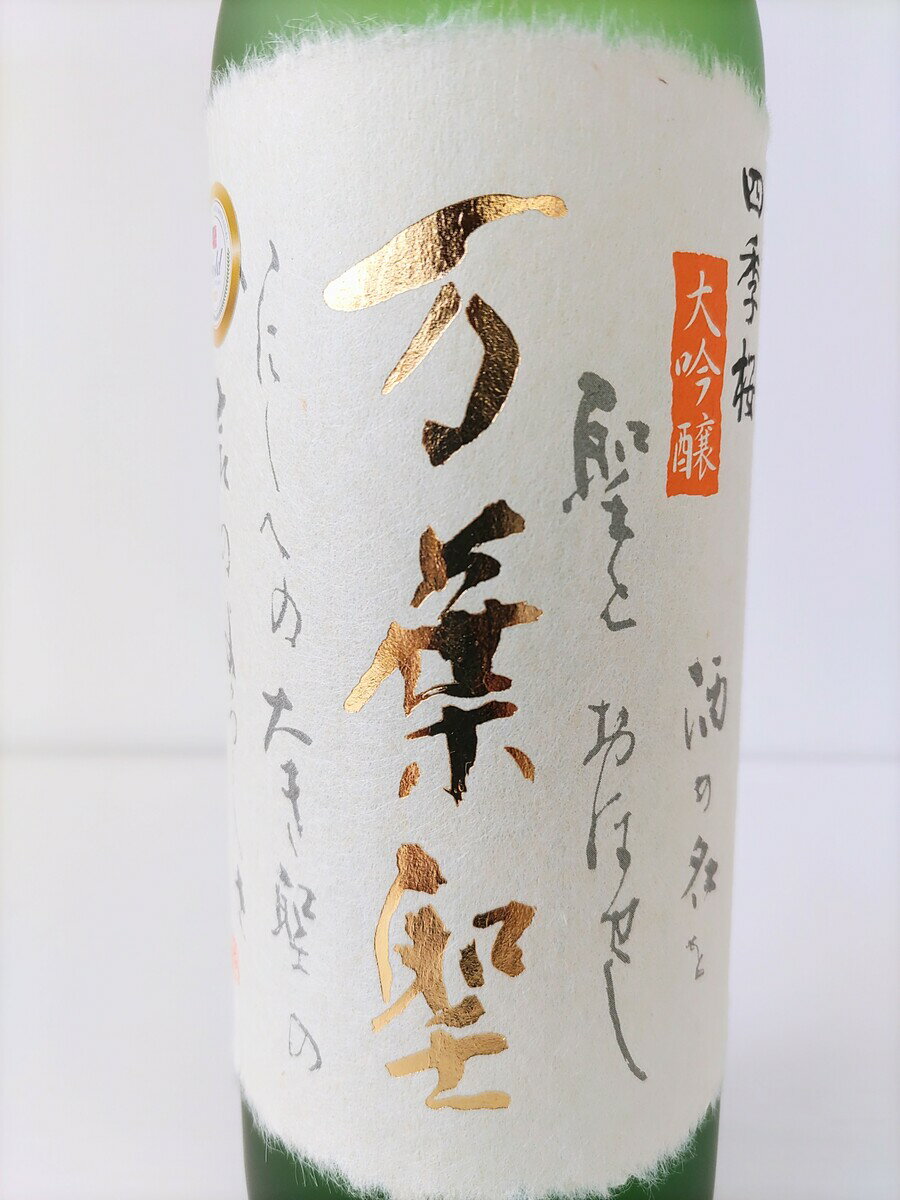 四季桜
大吟醸
酒の名を
聖と
おほせし
万葉聖
いにしへの
大き聖の
言の